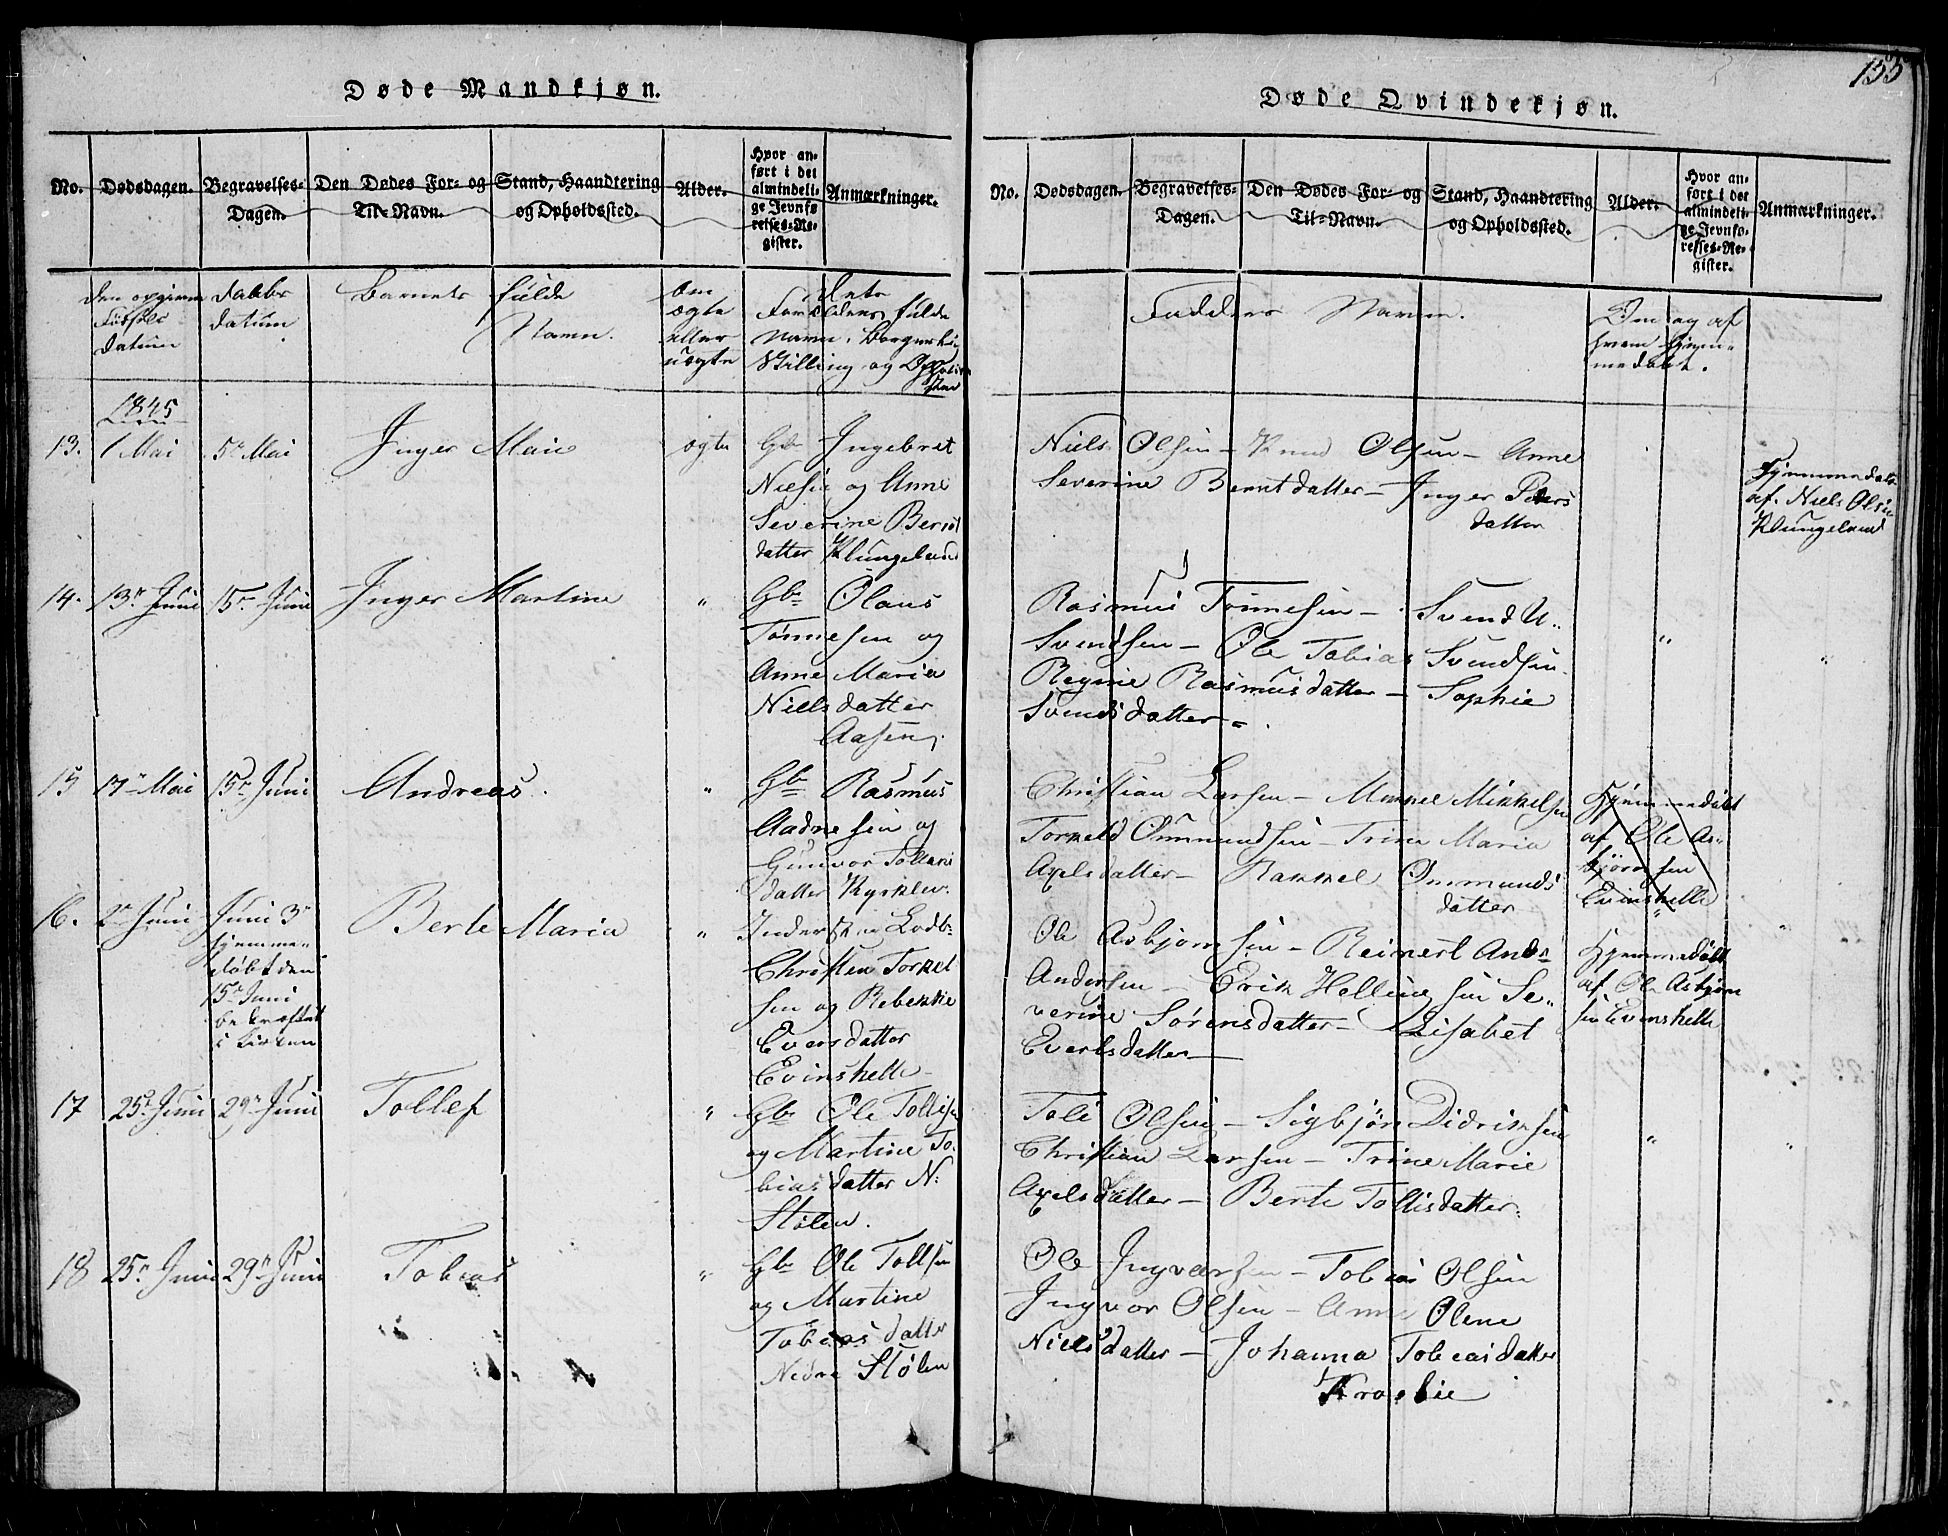 155
Døde Mandkjøn.
No. Dødsdagen. Begravelses-Dagen. Den Dødes For- og Til-Navn. Stand, Haandtering og Opholdssted. Alder. Hvor anført i det almindelige Jevnførelses-Register. Anmærkninger.
Døde Qvindekjøn.
No. Dødsdagen. Begravelses-Dagen. Den Dødes For- og Til-Navn. Stand, Haandtering og Opholdssted. Alder. Hvor anført i det almindelige Jevnførelses-Register. Anmærkninger.
Fødsels
datum
Daabs
datum
Barnets fulde
Navn.
Om
ægte
eller
uægte
Forældrenes fulde
Navn, Borgerlig
Stilling og
Fadderes Navn.
Om og af
hvem hjem-
medøbt.
1845
13. 1 Mai 5te Mai Inger Marie ægte Gb. Ingebret
Nielsen og Anne
Severine Bernt
datter Klungeland
Niels Olsen - Knud Olsen - Anne
Severine Berntdatter - Inger Peders
datter
Hjemmedøbt
af Niels Olsen
Klungeland
14. 13de Juni 15de Juni Inger Martine " Gbr Olaus
Tønnesen og
Anne Maria
Nielsdatter
Aasen.
Rasmus Tønnesen - Svend U..
Svendsen - Ole Tobias Svendsen
Regine Rasmusdatter - Sophie
Svendsdatter -
"
"
15 17de Mai 15de Juni Andreas. " Gbr Rasmus
Aadnesen og
Gunvor Tollevs
datter
Christian Larsen - Mikkel Mikkelsen
Torkeld Ommundsen - Trine Maria
Axelsdatter - Rakkel Ommunds
datter
Hjemmedøbt
af Ole As-
bjørnsen
Evinshelle
"
16. 2de Juni Juni 3de
hjemme-
døbt den
15de Juni
bekræftet
i Kirken
Berte Maria " Inderst og Lods
Christen Torkel
sen og Rebekke
Eversdatter
Evinshelle
Ole Asbjørnsen - Reinert Ands
Andersen - Erik Hellinesen Se-
verine Sørensdatter - Lisabet
Evertsdatter -
Hjemmedøbt
af Ole Asbjørn
sen Evinshelle
"
17 25de Juni 29de Juni Tollef " Gbr Ole Tollisen
og Martine To-
biasdatter N:
Stølen.
Toli Olsen - Sigbjørn Didriksen
Christian Larsen - Trine Marie
Axelsdatter - Berte Tollisdatter.
"
"
18 25de Juni 29de Juni Tobias " Gbr Ole Tollsen
og Martine
Tobiasdatter
Nedre Stølen
Ole Ingvarsen - Tobias Olsen
Ingvor Olsen - Anne Olene
Nielsdatter - Johanna Tobiasdatter